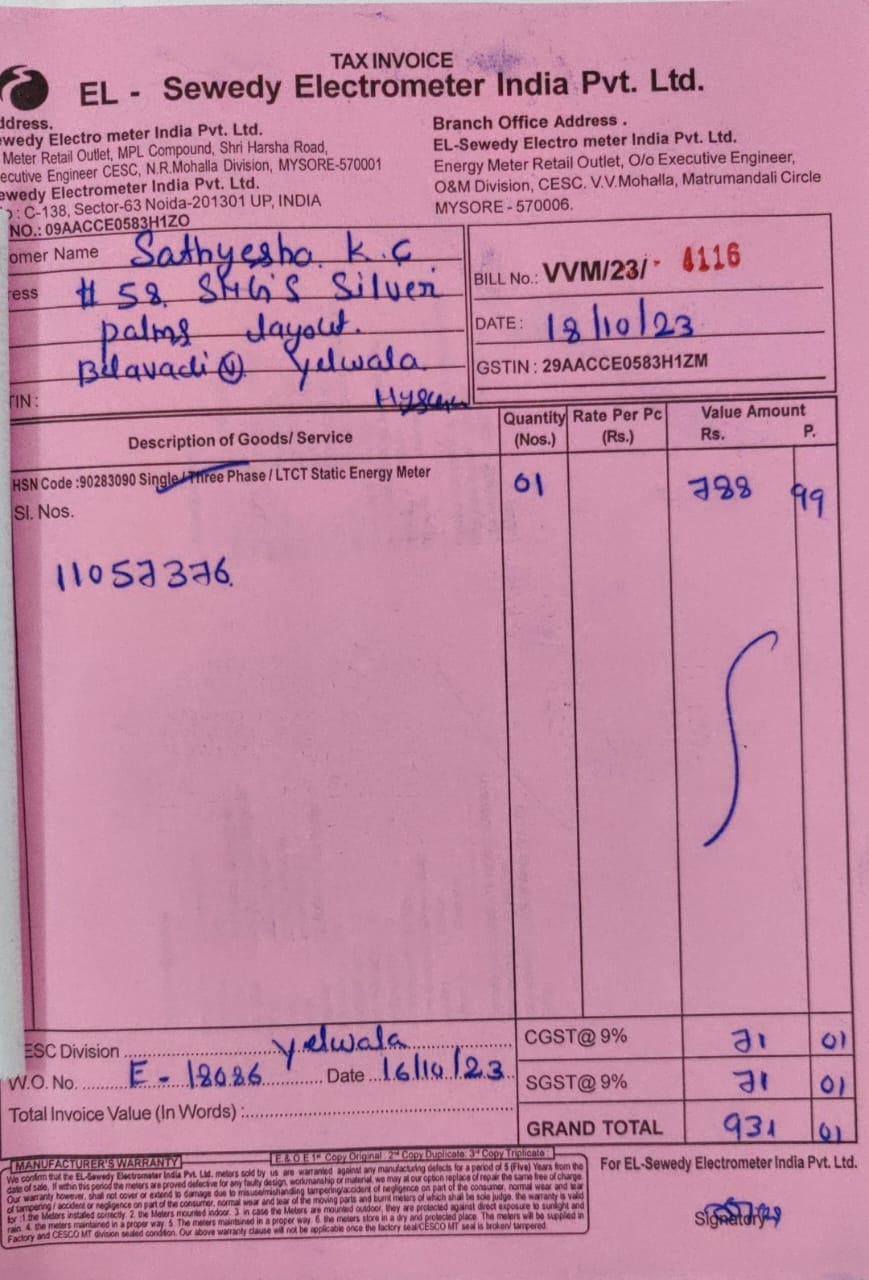 TAX INVOICE
EL - Sewedy Electrometer India Pvt. Ltd.
ddress.
ewedy Electro meter India Pvt. Ltd.
Meter Retail Outlet, MPL Compound, Shri Harsha Road,
ecutive Engineer CESC, N.R.Mohalla Division, MYSORE-570001
ewedy Electrometer India Pvt. Ltd.
: C-138, Sector-63 Noida-201301 UP, INDIA
NO.: 09AACCE0583H1ZO
Branch Office Address .
EL-Sewedy Electro meter India Pvt. Ltd.
Energy Meter Retail Outlet, O/o Executive Engineer,
O&M Division, CESC. V.V.Mohalla, Matrumandali Circle
MYSORE - 570006.
omer Name Sathyesha K.C
ress # 58. SMG'S Silver
palms layout.
Belavadi Yelwala
TIN :
BILL No.: VVM/23/- 4116
DATE : 18/10/23
GSTIN : 29AACCE0583H1ZM
Description of Goods/ Service Quantity (Nos.) Rate Per Pc (Rs.) Value Amount Rs. P.
HSN Code :90283090 Single / Three Phase / LTCT Static Energy Meter 01 788 99
Sl. Nos.
11057376.
ESC Division Yelwala
W.O. No. E - 18086 Date 16/10/23
Total Invoice Value (In Words) :
CGST@ 9% 71 01
SGST@ 9% 71 01
GRAND TOTAL 931 01
E & O E 1st Copy Original : 2nd Copy Duplicate: 3rd Copy Triplicate :
MANUFACTURER'S WARRANTY
We confirm that the EL-Sewedy Electrometer India Pvt. Ltd. meters sold by us are warranted against any manufacturing defects for a period of 5 (Five) Years from the
date of sale. If within this period the meters are proved defective for any faulty design, workmanship or material, we may at our option replace of repair the same free of charge.
Our warranty however, shall not cover or extend to damage due to misuse/mishandling tampering/accident of negligence on part of the consumer, normal wear and tear
of tampering / accident or negligence on part of the consumer, normal wear and tear of the moving parts and burnt meters of which shall be sole judge. the warranty is valid
for :1.the Meters installed correctly. 2. the Meters mounted indoor. 3. in case the Meters are mounted outdoor, they are protected against direct exposure to sunlight and
rain. 4. the meters maintained in a proper way. 5. The meters maintained in a proper way. 6. the meters store in a dry and protected place. The meters will be supplied in
Factory and CESCO MT division sealed condition. Our above warranty clause will not be applicable once the factory seal/CESCO MT seal is broken/ tampered.
For EL-Sewedy Electrometer India Pvt. Ltd.
Signatory